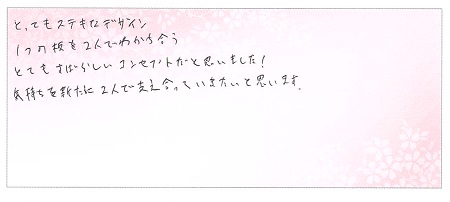 とってもステキなデザイン
1つの板を2人でわかち合う
とてもすばらしいコンセプトだと思いました!
気持ちを新たに2人で支え合っていきたいと思います。